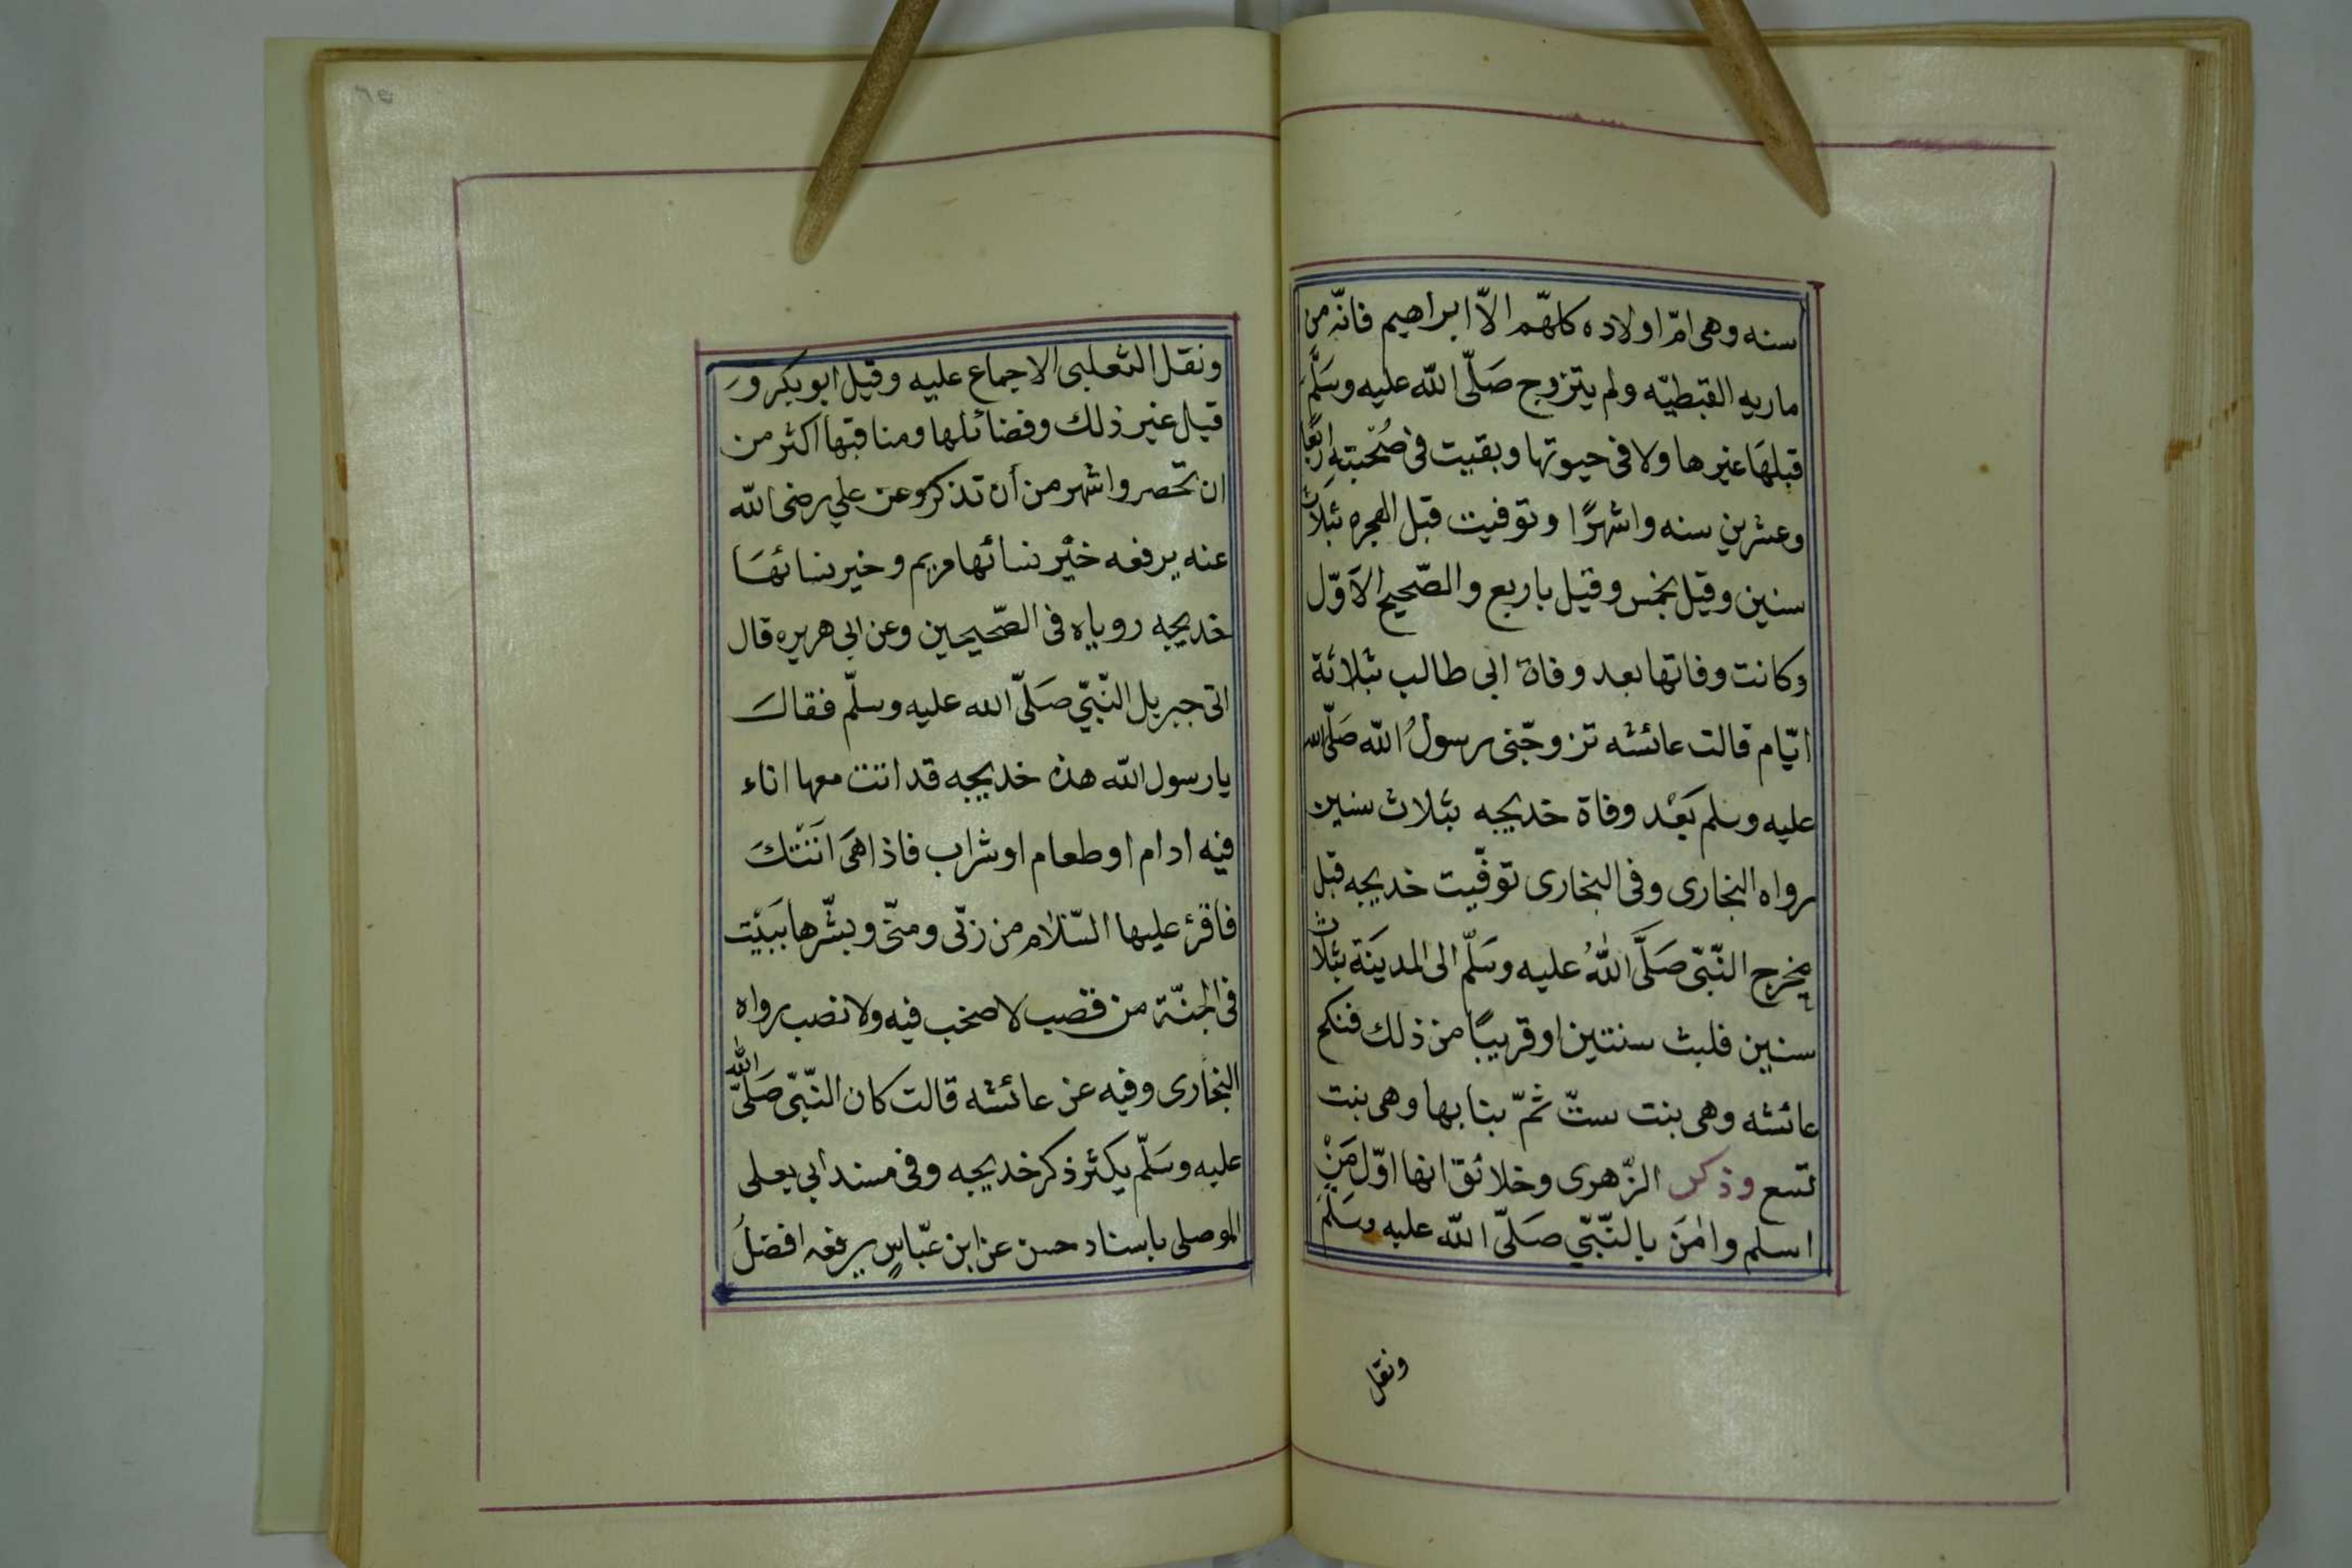 سنه وهى امّ اولاده كلهّم الاّ ابراهيم فانّه من
ماريه القبطيّه ولم يتزوج صَلّى الله عليه وسَلَّم
قبلهَا غيرها ولا فى حيوتها وبقيت فى صُحْبته اربعًا
وعشرين سنه واشهرًا وتوفيت قبل الهجره بثلاث
سنين وقيل بخمس وقيل باربع والصّحيح الاَوّل
وكانت وفاتها بعد وفاة ابى طالب بثلاثة
ايّام قالت عائشه تزوجّنى رسولُ الله صَلّى الله
عليه وسلم بَعْد وفاة خديجه بثلاث سنين
رواه البخارى وفى البخارى توفّيت خديجه قبل
مخرج النّبّى صَلَّى اللهُ عليه وسَلّم الى المدينَة بثلاث
سنين فلبث سنتين او قريبًا من ذلك فنكح
عائشه وهى بنت ستّ ثمّ بنا بها وهى بنت
تسع وذكر الزّهرى وخلائق انها اوّل مَنْ
اسلم واٰمَنَ بالنّبّي صَلّى الله عليه وسَلّمَ
ونقل
ونقل الثعلبى الاجماع عليه وقيل ابو بكر وَ
قيل غير ذلك وفضائلها ومناقبها اكثر من
ان تحصر واشهر من أن تذكر وعن علي رضى الله
عنه يرفعه خيْر نسائها مريم وخير نسائهَا
خديجه روياه فى الصّحيحين وعن ابى هريره قال
اتى جبريل النّبّي صَلّى الله عليه وسلّم فقال
يا رسول الله هذه خديجه قد اتت معها اناء
فيه ادام او طعام او شراب فاذا هىَ اَتَتْكَ
فاقرؤ عليها السّلام من رَبّى ومنّى وبشّرها ببَيْت
فى الجنّة من قصب لا صخب فيه ولا نصب رواه
البخارى وفيه عن عائشه قالت كان النّبّى صَلّى الله
عليه وسَلّم يكثر ذكر خديجه وفى مسند ابى يعلى
الموصلى باسناد حسن عن ابن عبّاسٍ يرفعه افضلُ